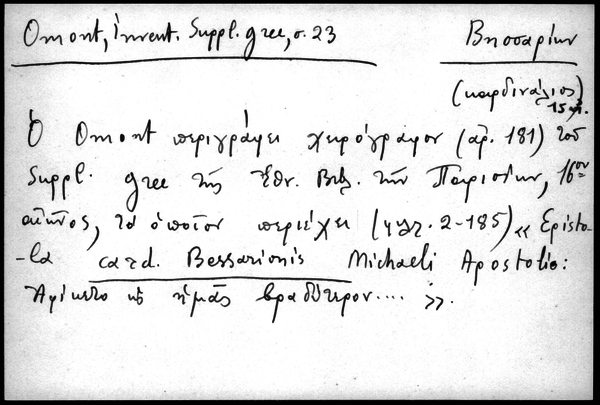 Omont, Invent. Suppl. grec, σ. 23
Βησσαρίων
(καρδινάλιος)
15 αἰ.
Ὁ Omont περιγράφει χειρόγραφον (ἀρ. 181) τοῦ
Suppl. grec τῆς Ἐθν. Βιβλ. τῶν Παρισίων, 16ου
αἰῶνος, τὸ ὁποῖον περιέχει (φυλ. 2-185) « Episto-
-la card. Bessarionis Michaeli Apostolio:
Ἀφίκετο ὡς ἡμᾶς βραδύτερον.... ».